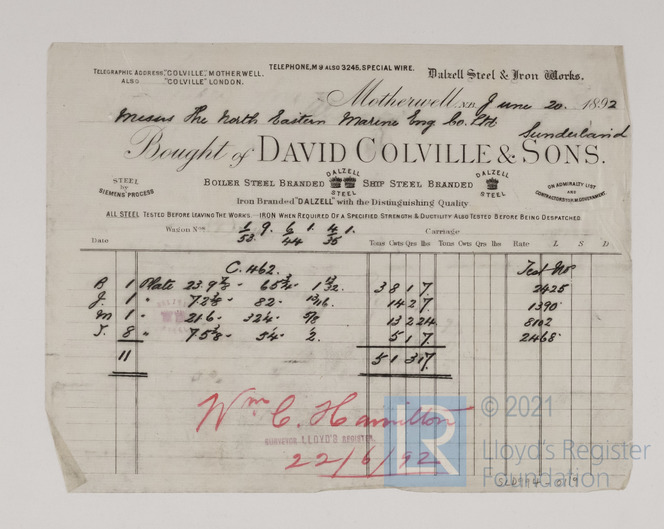 TELEGRAPHIC ADDRESS, "COLVILLE", MOTHERWELL.
ALSO "COLVILLE" LONDON.
TELEPHONE, No 9 ALSO 3245, SPECIAL WIRE.
Dalzell Steel & Iron Works.
Motherwell, N.B. June 20. 1892
Messrs The North Eastern Marine Eng Co. Ltd
Sunderland
Bought of DAVID COLVILLE & SONS.
STEEL by SIEMENS' PROCESS
BOILER STEEL BRANDED DALZELL STEEL SHIP STEEL BRANDED DALZELL STEEL
ON ADMIRALTY LIST AND CONTRACTORS FOR H.M. GOVERNMENT.
Iron Branded "DALZELL" with the Distinguishing Quality
ALL STEEL TESTED BEFORE LEAVING THE WORKS.—IRON WHEN REQUIRED OF A SPECIFIED STRENGTH & DUCTILITY ALSO TESTED BEFORE BEING DESPATCHED.
Wagon Nos
Carriage
Date Tons Cwts Qrs lbs Tons Cwts Qrs lbs Rate L S D
C. 462. Test Nos
B 1 Plate 3 8 1 7 2425
J. 1 " 82 13/16 14 2 7 1390
M 1 " 5/8 13 2 24 8102
J. 8 " 2. 5 1 7 2468
11 5 1 3 17
Wm C. Hamilton
SURVEYOR LLOYD'S REGISTER
22/6/92
© 2021
Lloyd's Register
Foundation